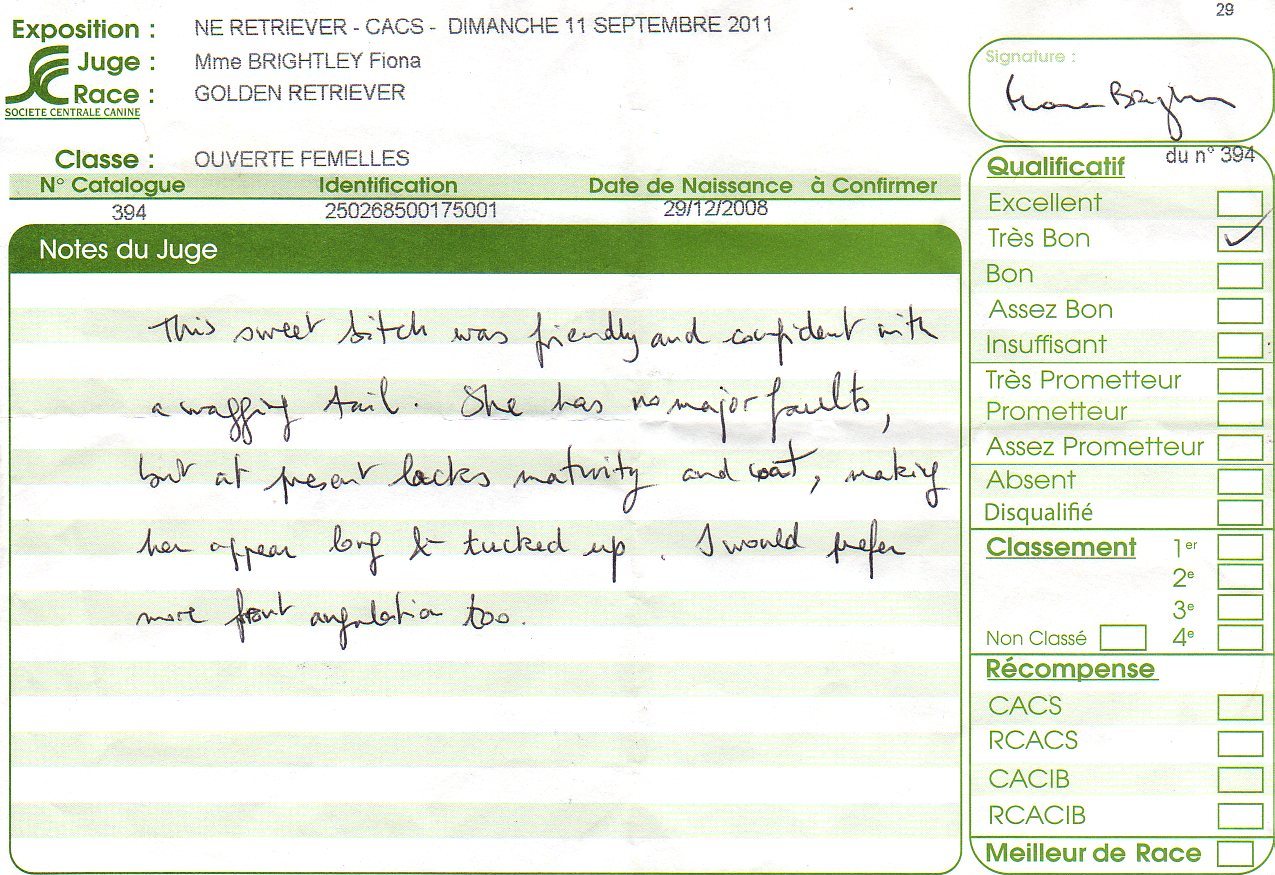 29
Exposition : NE RETRIEVER - CACS - DIMANCHE 11 SEPTEMBRE 2011
Juge : Mme BRIGHTLEY Fiona
Race : GOLDEN RETRIEVER
SOCIETE CENTRALE CANINE
Classe : OUVERTE FEMELLES
N° Catalogue Identification Date de Naissance à Confirmer
394 250268500175001 29/12/2008
Notes du Juge
This sweet bitch was friendly and confident with
a wagging tail. She has no major faults,
but at present lacks maturity and coat, making
her appear long & tucked up. I would prefer
more front angulation too.
Signature :
du n° 394
Qualificatif
Excellent
Très Bon
Bon
Assez Bon
Insuffisant
Très Prometteur
Prometteur
Assez Prometteur
Absent
Disqualifié
Classement 1er
2e
3e
Non Classé 4e
Récompense
CACS
RCACS
CACIB
RCACIB
Meilleur de Race